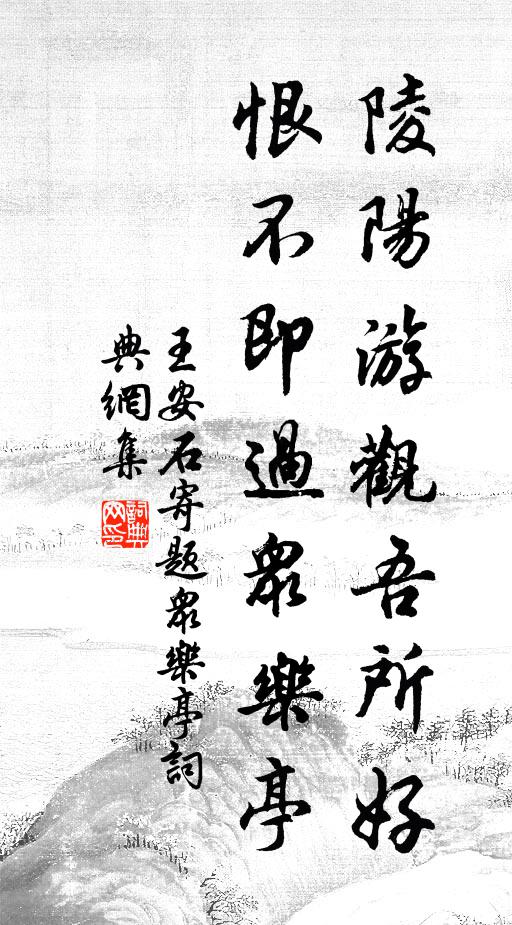 陵陽游觀吾所好
恨不即過眾樂亭
王安石寄题眾樂亭詞
典網集
詞典
网印